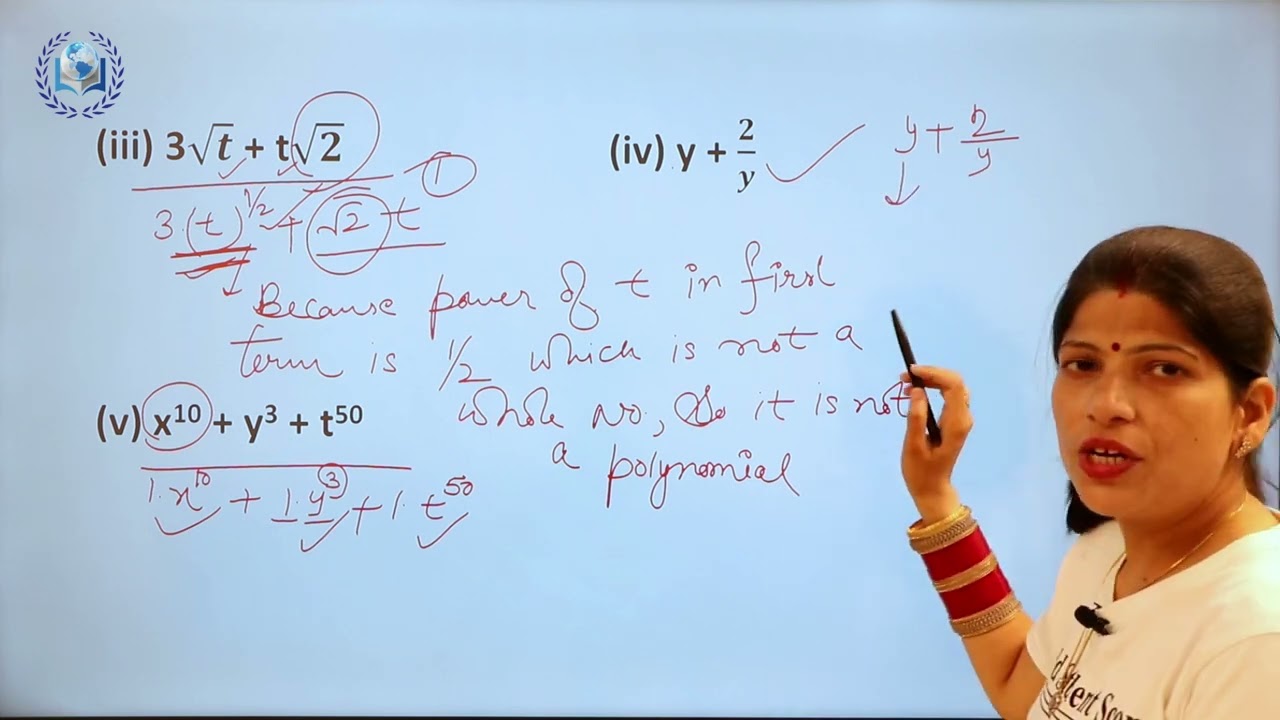 (iii) 3√t + t√2
1
3 (t)^1/2 + √2 t
(iv) y + 2/y
y + 2/y
Because power of t in first
term is 1/2 which is not a
whole No, So it is not
a polynomial
(v) x¹⁰ + y³ + t⁵⁰
1. x¹⁰ + 1. y³ + 1. t⁵⁰